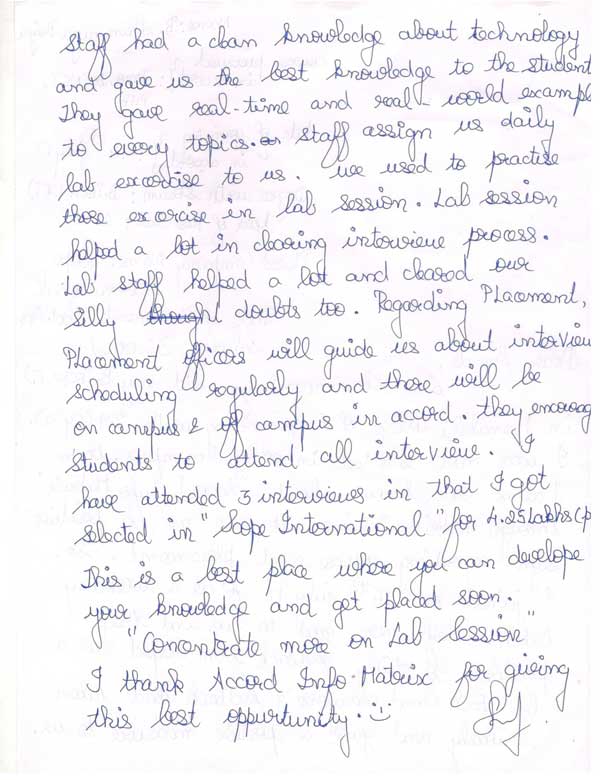 staff had a clean knowledge about technology
and gave us the best knowledge to the student
They gave real-time and real-world exampl
to every topics. staff assign us daily
lab excercise to us. we used to practise
those excercise in lab session. Lab session
helped a lot in clearing interview process.
Lab staff helped a lot and cleared our
silly thought doubts too. Regarding Placement,
Placement officers will guide us about interview
scheduling regularly and there will be
on campus & off campus in accord. they encourag
students to attend all interview. I
have attended 3 interviews in that I got
selected in "Scope International" for 4.25 Lakhs (p
This is a best place where you can develope
your knowledge and get placed soon.
"Concentrate more on Lab Session"
I thank Accord Info Matrix for giving
this best oppurtunity.